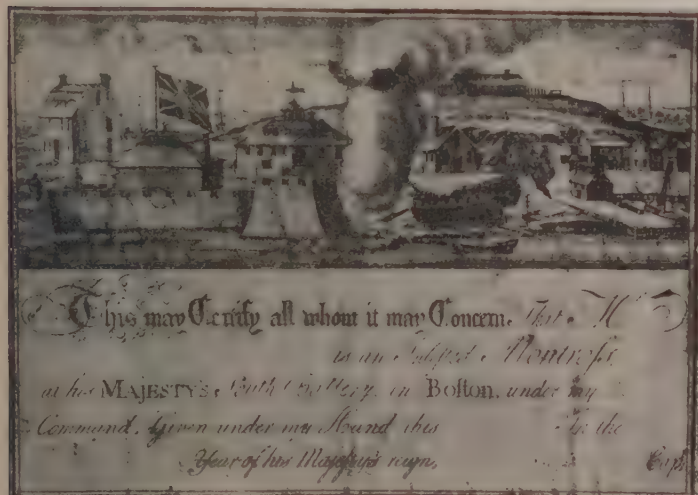 This may Certify all whom it may Concern. That Mʳ
is an Inlisted Montross,
at his MAJESTY'S South Battery, in Boſton, under my
Command. Given under my Hand this In the
Year of his Majeſty's reign,
Capᵗ